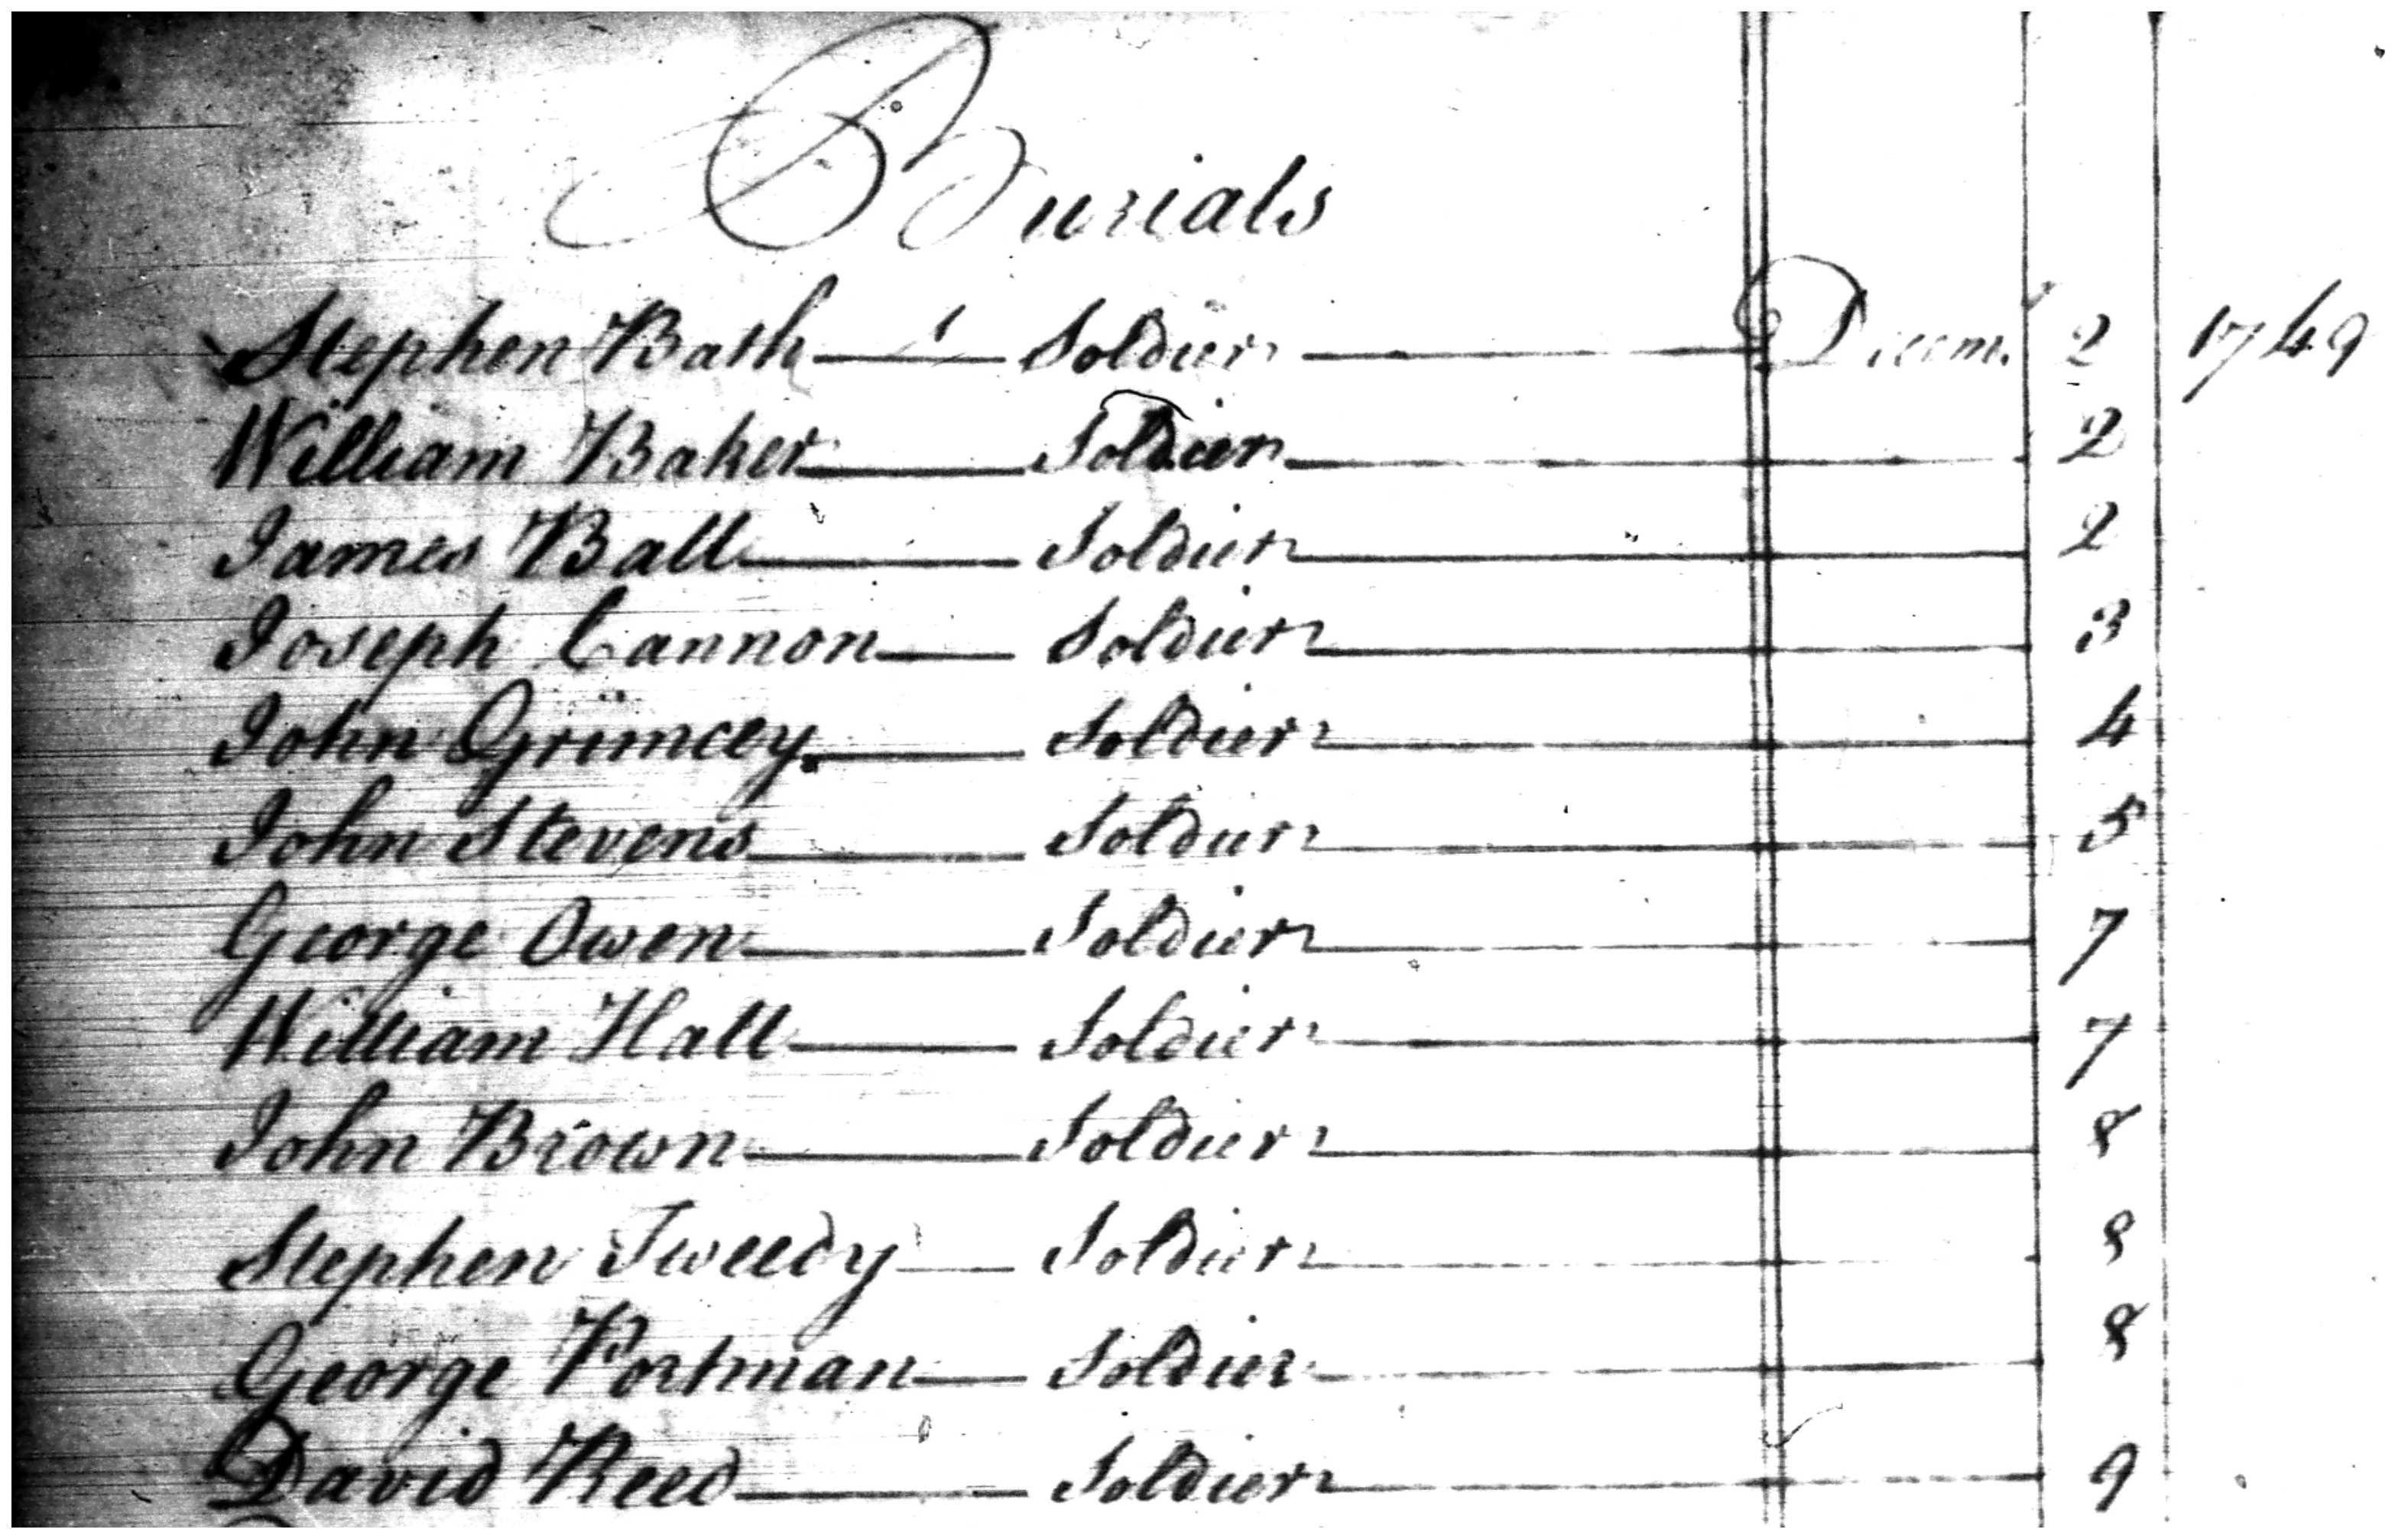 Burials
Stephen Bath Soldier Decem. 2 1749
William Baker Soldier 2
James Ball Soldier 2
Joseph Cannon Soldier 3
John Grimcey Soldier 4
John Stevens Soldier 5
George Owen Soldier 7
William Hall Soldier 7
John Brown Soldier 8
Stephen Tweedy Soldier 8
George Portman Soldier 8
David Reed Soldier 9